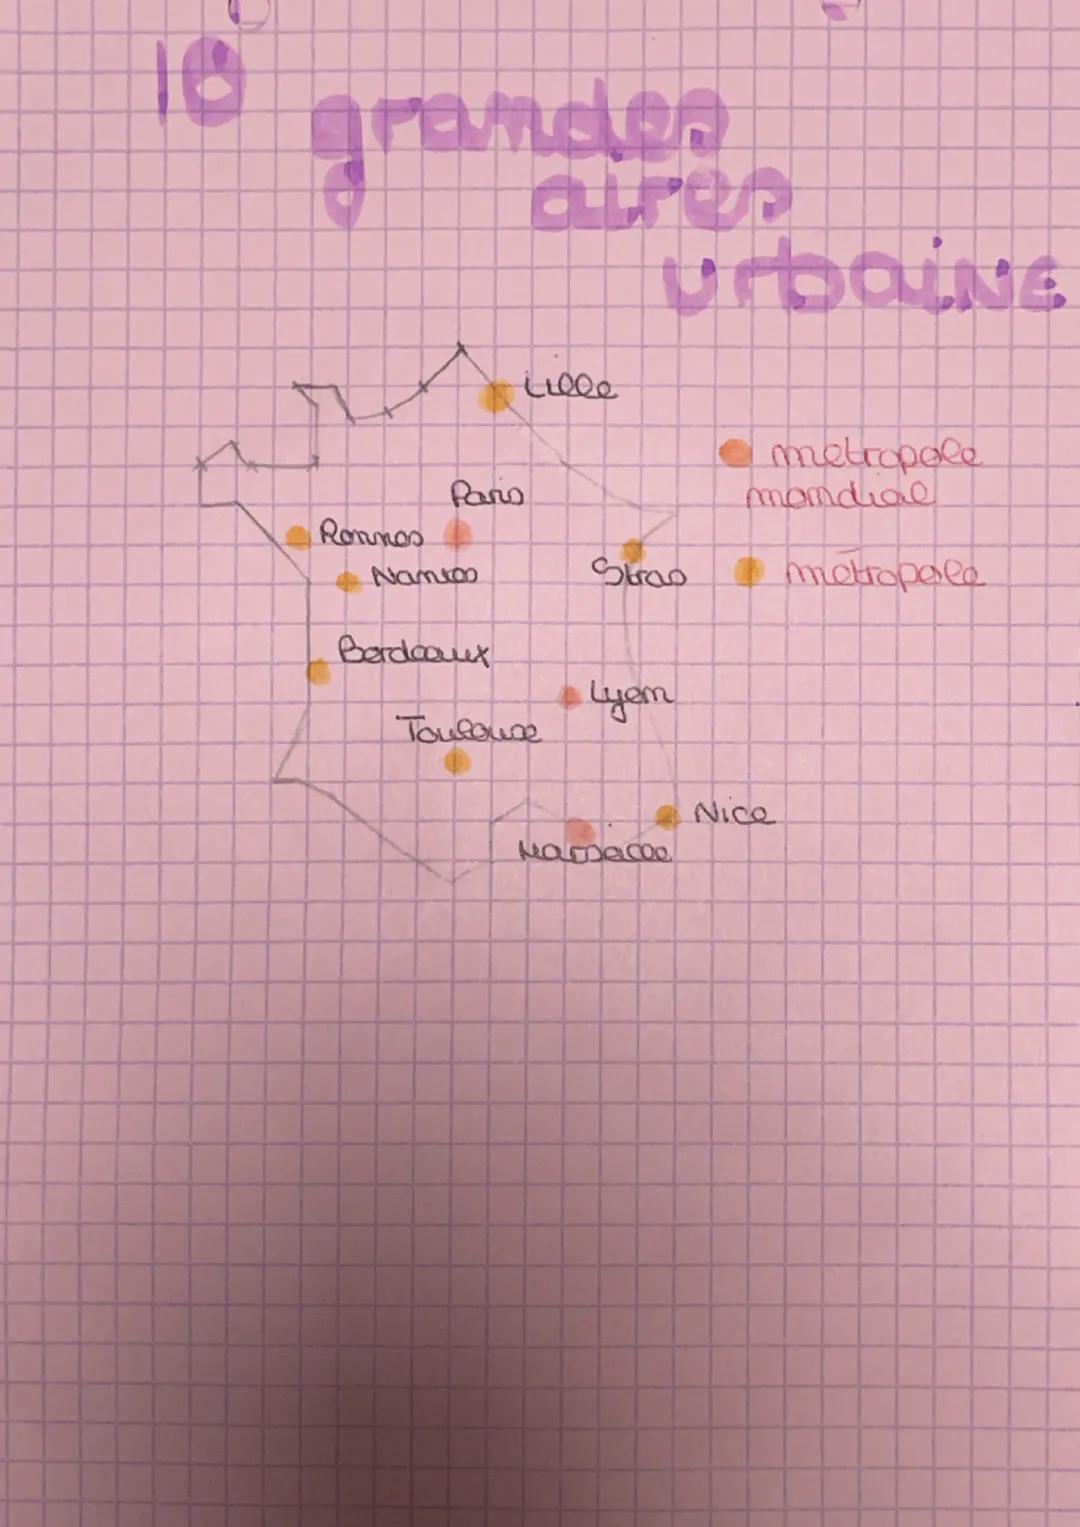 10
grandes
aires
urbaine
Lille
métropole
mondial
Paris
Rennes
Nantes
Stras
métropole
Bordeaux
Lyon
Toulouse
Nice
Marseille